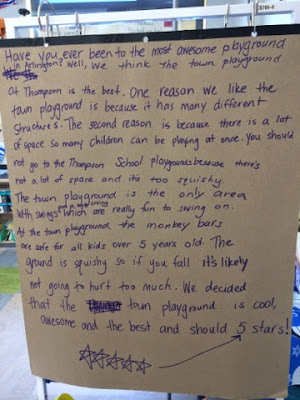 Have you ever been to the most awesome playground
in Arlington? Well, we think the town playground
at Thompson is the best. One reason we like the
town playground is because it has many different
structures. The second reason is because there is a lot
of space so many children can be playing at once. You should
not go to the Thompson School playgrounds because there's
not a lot of space and it's too squishy
The town playground is the only area
with swings which are really fun to swing on.
At the town playground the monkey bars
are safe for all kids over 5 years old. The
ground is squishy so if you fall it's likely
not going to hurt too much. We decided
that the town playground is cool,
awesome and the best and should 5 stars!